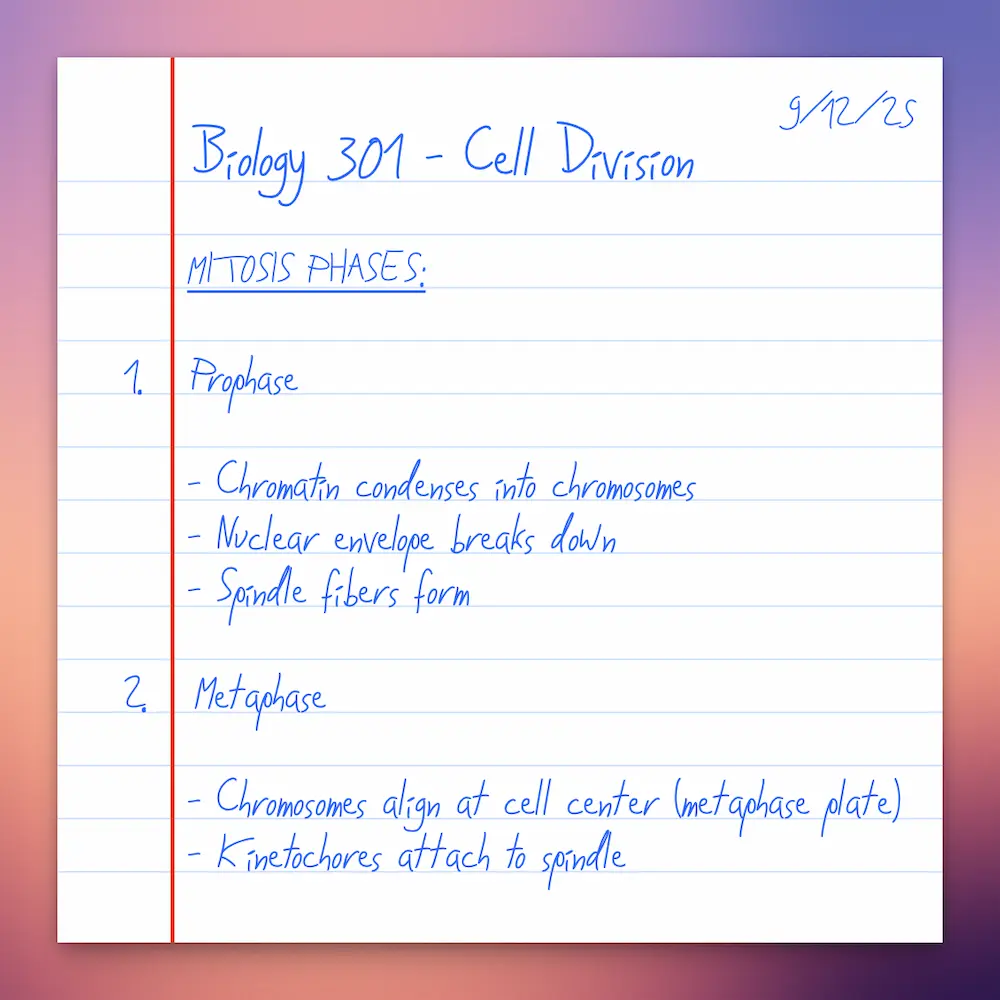 9/12/25
Biology 301 - Cell Division
MITOSIS PHASES:
1. Prophase
- Chromatin condenses into chromosomes
- Nuclear envelope breaks down
- Spindle fibers form
2. Metaphase
- Chromosomes align at cell center (metaphase plate)
- Kinetochores attach to spindle